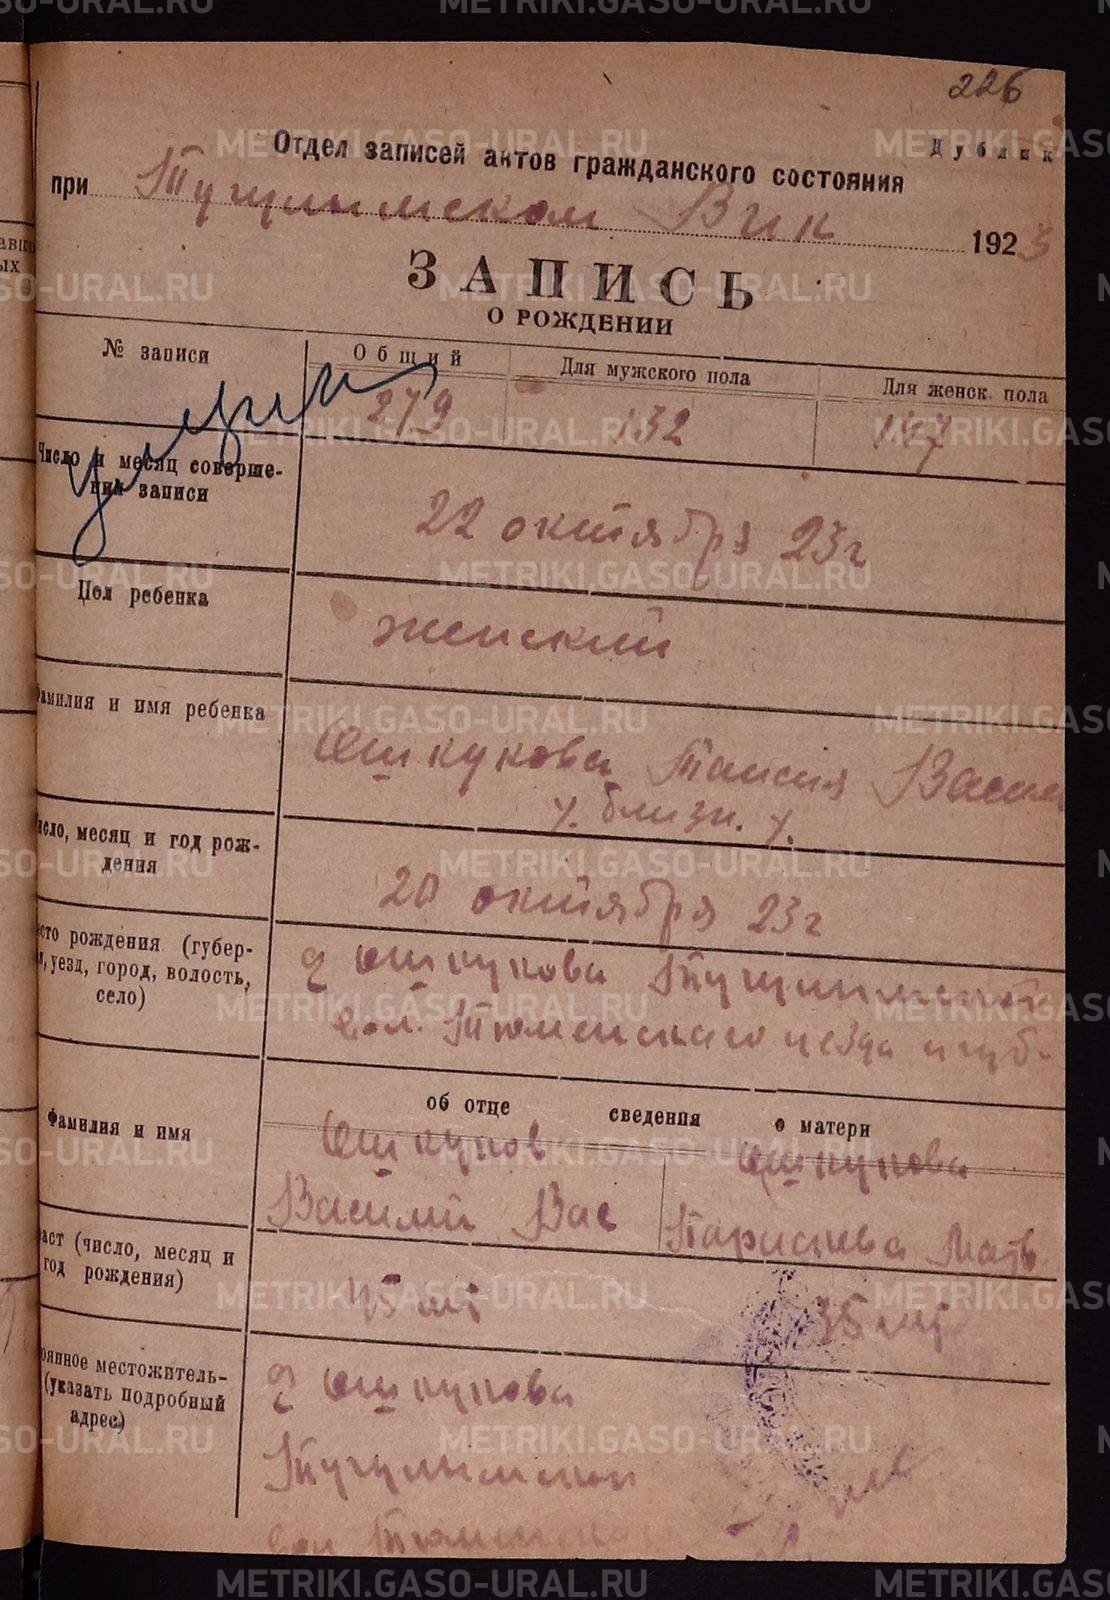 226
Дублик
Отдел записей актов гражданского состояния
при Тугулымском Вик 1923
ЗАПИСЬ
О РОЖДЕНИИ
№ записи
Общий
Для мужского пола
Для женск. пола
279
132
147
умерла
Число и месяц соверше-
ния записи
22 октября 23г
Пол ребенка
женский
Фамилия и имя ребенка
Ошкукова Таисия Васил
/. близн. /.
число, месяц и год рож-
дения
20 октября 23г
место рождения (губер-
я, уезд, город, волость,
село)
д Ошкукова Тугулымской
вол. Тюменскаго уезда и губ.
Фамилия и имя
об отце сведения о матери
Ошкуков
Василий Вас
Ошкукова
Матв
раст (число, месяц и
год рождения)
35 лет
оянное местожитель-
(указать подробный
адрес)
д Ошкукова
Тугулымской
вол Тюменска
METRIKI.GASO-URAL.RU